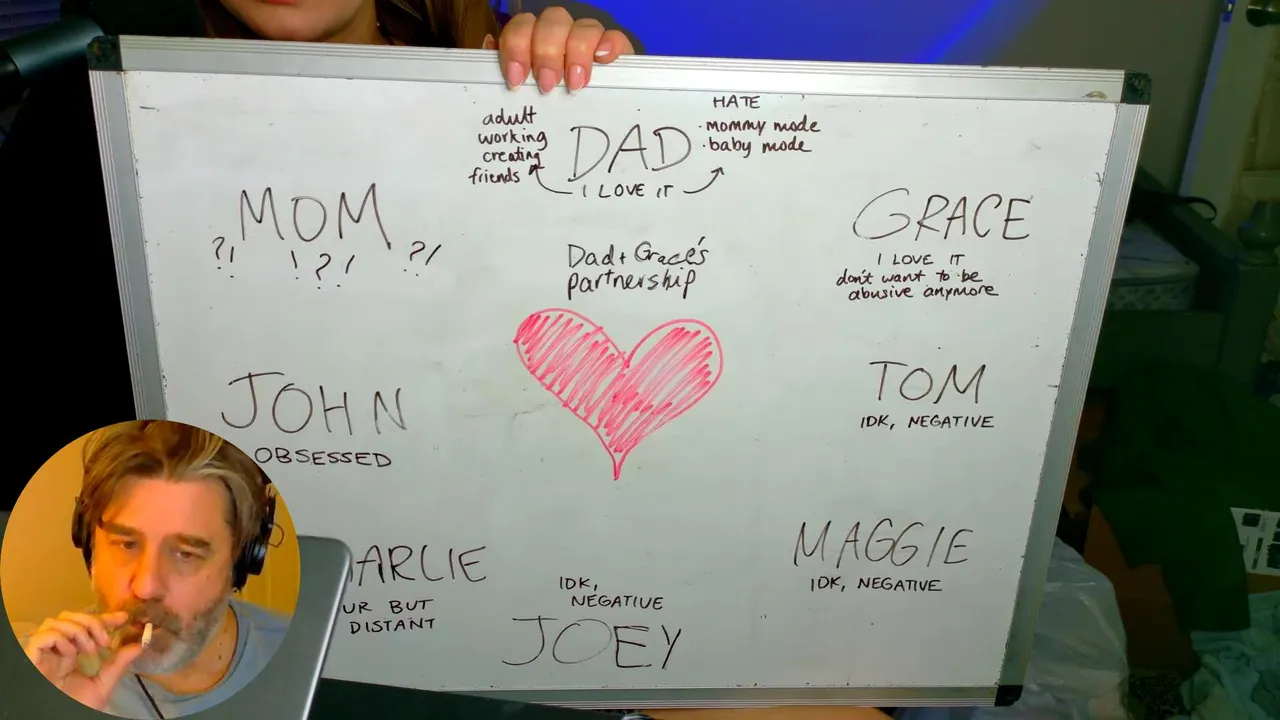 HATE
adult
working
creating
friends
DAD
· mommy mode
· baby mode
I LOVE IT
MOM
?! !?! ?!
Dad + Grace's
partnership
GRACE
I LOVE IT
don't want to be
abusive anymore
JOHN
OBSESSED
TOM
IDK, NEGATIVE
ARLIE
UR BUT
DISTANT
IDK,
NEGATIVE
JOEY
MAGGIE
IDK, NEGATIVE